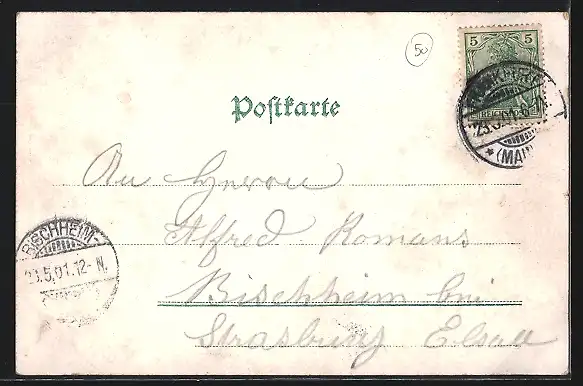 50
5 5
REICHSPOST
FRANKFURT
23.5.01.
* (MAIN
Postkarte
An Herrn
Alfred Romans
BISCHHEIM-
23.5.01.12-N.
Bischheim bei
Strasburg Elsaß